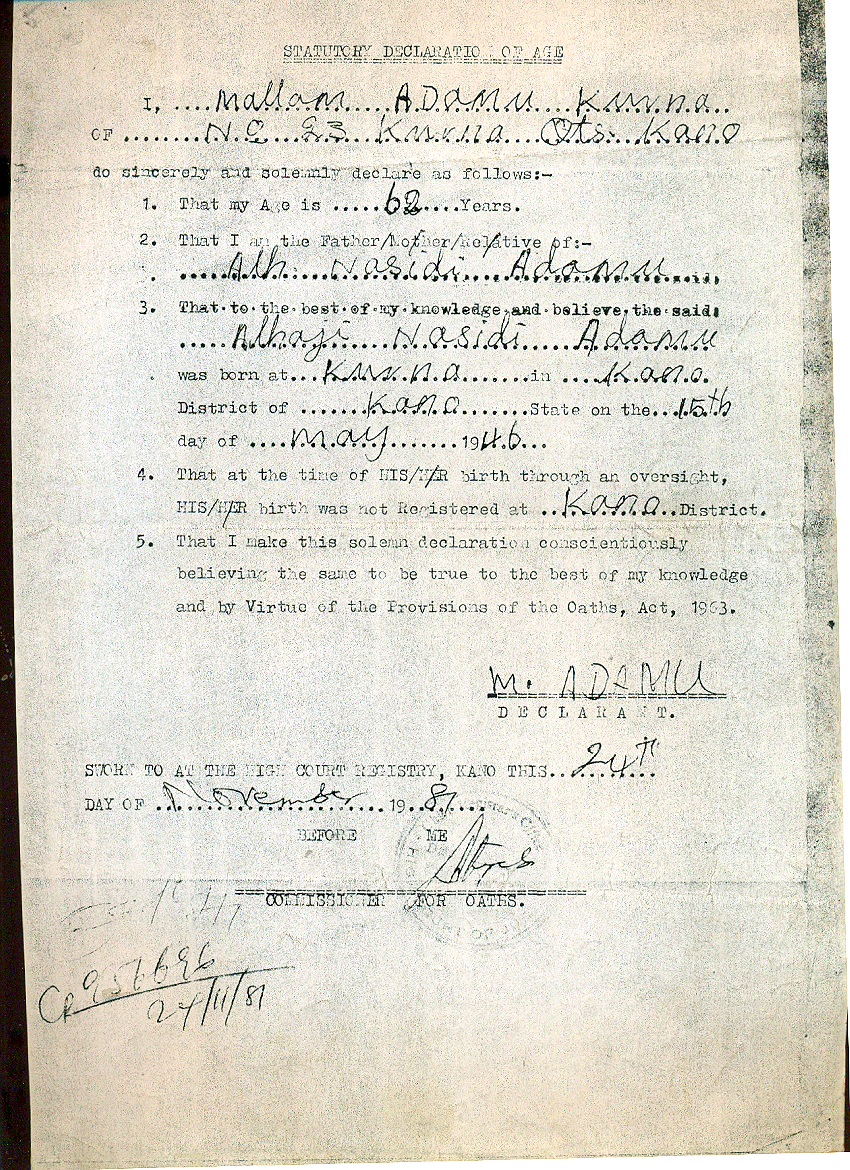 STATUTORY DECLARATION OF AGE
I, ....Mallam.....ADAMU....Kurna..
OF ........N.O...23...Kurna....Qts...Kano
do sincerely and solemnly declare as follows:-
1. That my Age is .....62....Years.
2. That I am the Father/Mother/Relative of:-
.....Alh....Nasidi....Adamu.......
3. That to the best of my knowledge and believe the said:
.....Alhaji....Nasidi.....Adamu
was born at...Kurna.......in ....Kano.
District of .......Kano.......State on the...15th
day of ....may.......1946...
4. That at the time of HIS/HER birth through an oversight,
HIS/HER birth was not Registered at ..Kano..District.
5. That I make this solemn declaration conscientiously
believing the same to be true to the best of my knowledge
and by Virtue of the Provisions of the Oaths, Act, 1963.
M. ADAMU
DECLARANT.
SWORN TO AT THE HIGH COURT REGISTRY, KANO THIS..24th
DAY OF ..November....19..81....
BEFORE ME
COMMISSIONER FOR OATHS.
CR 956696
24/11/81